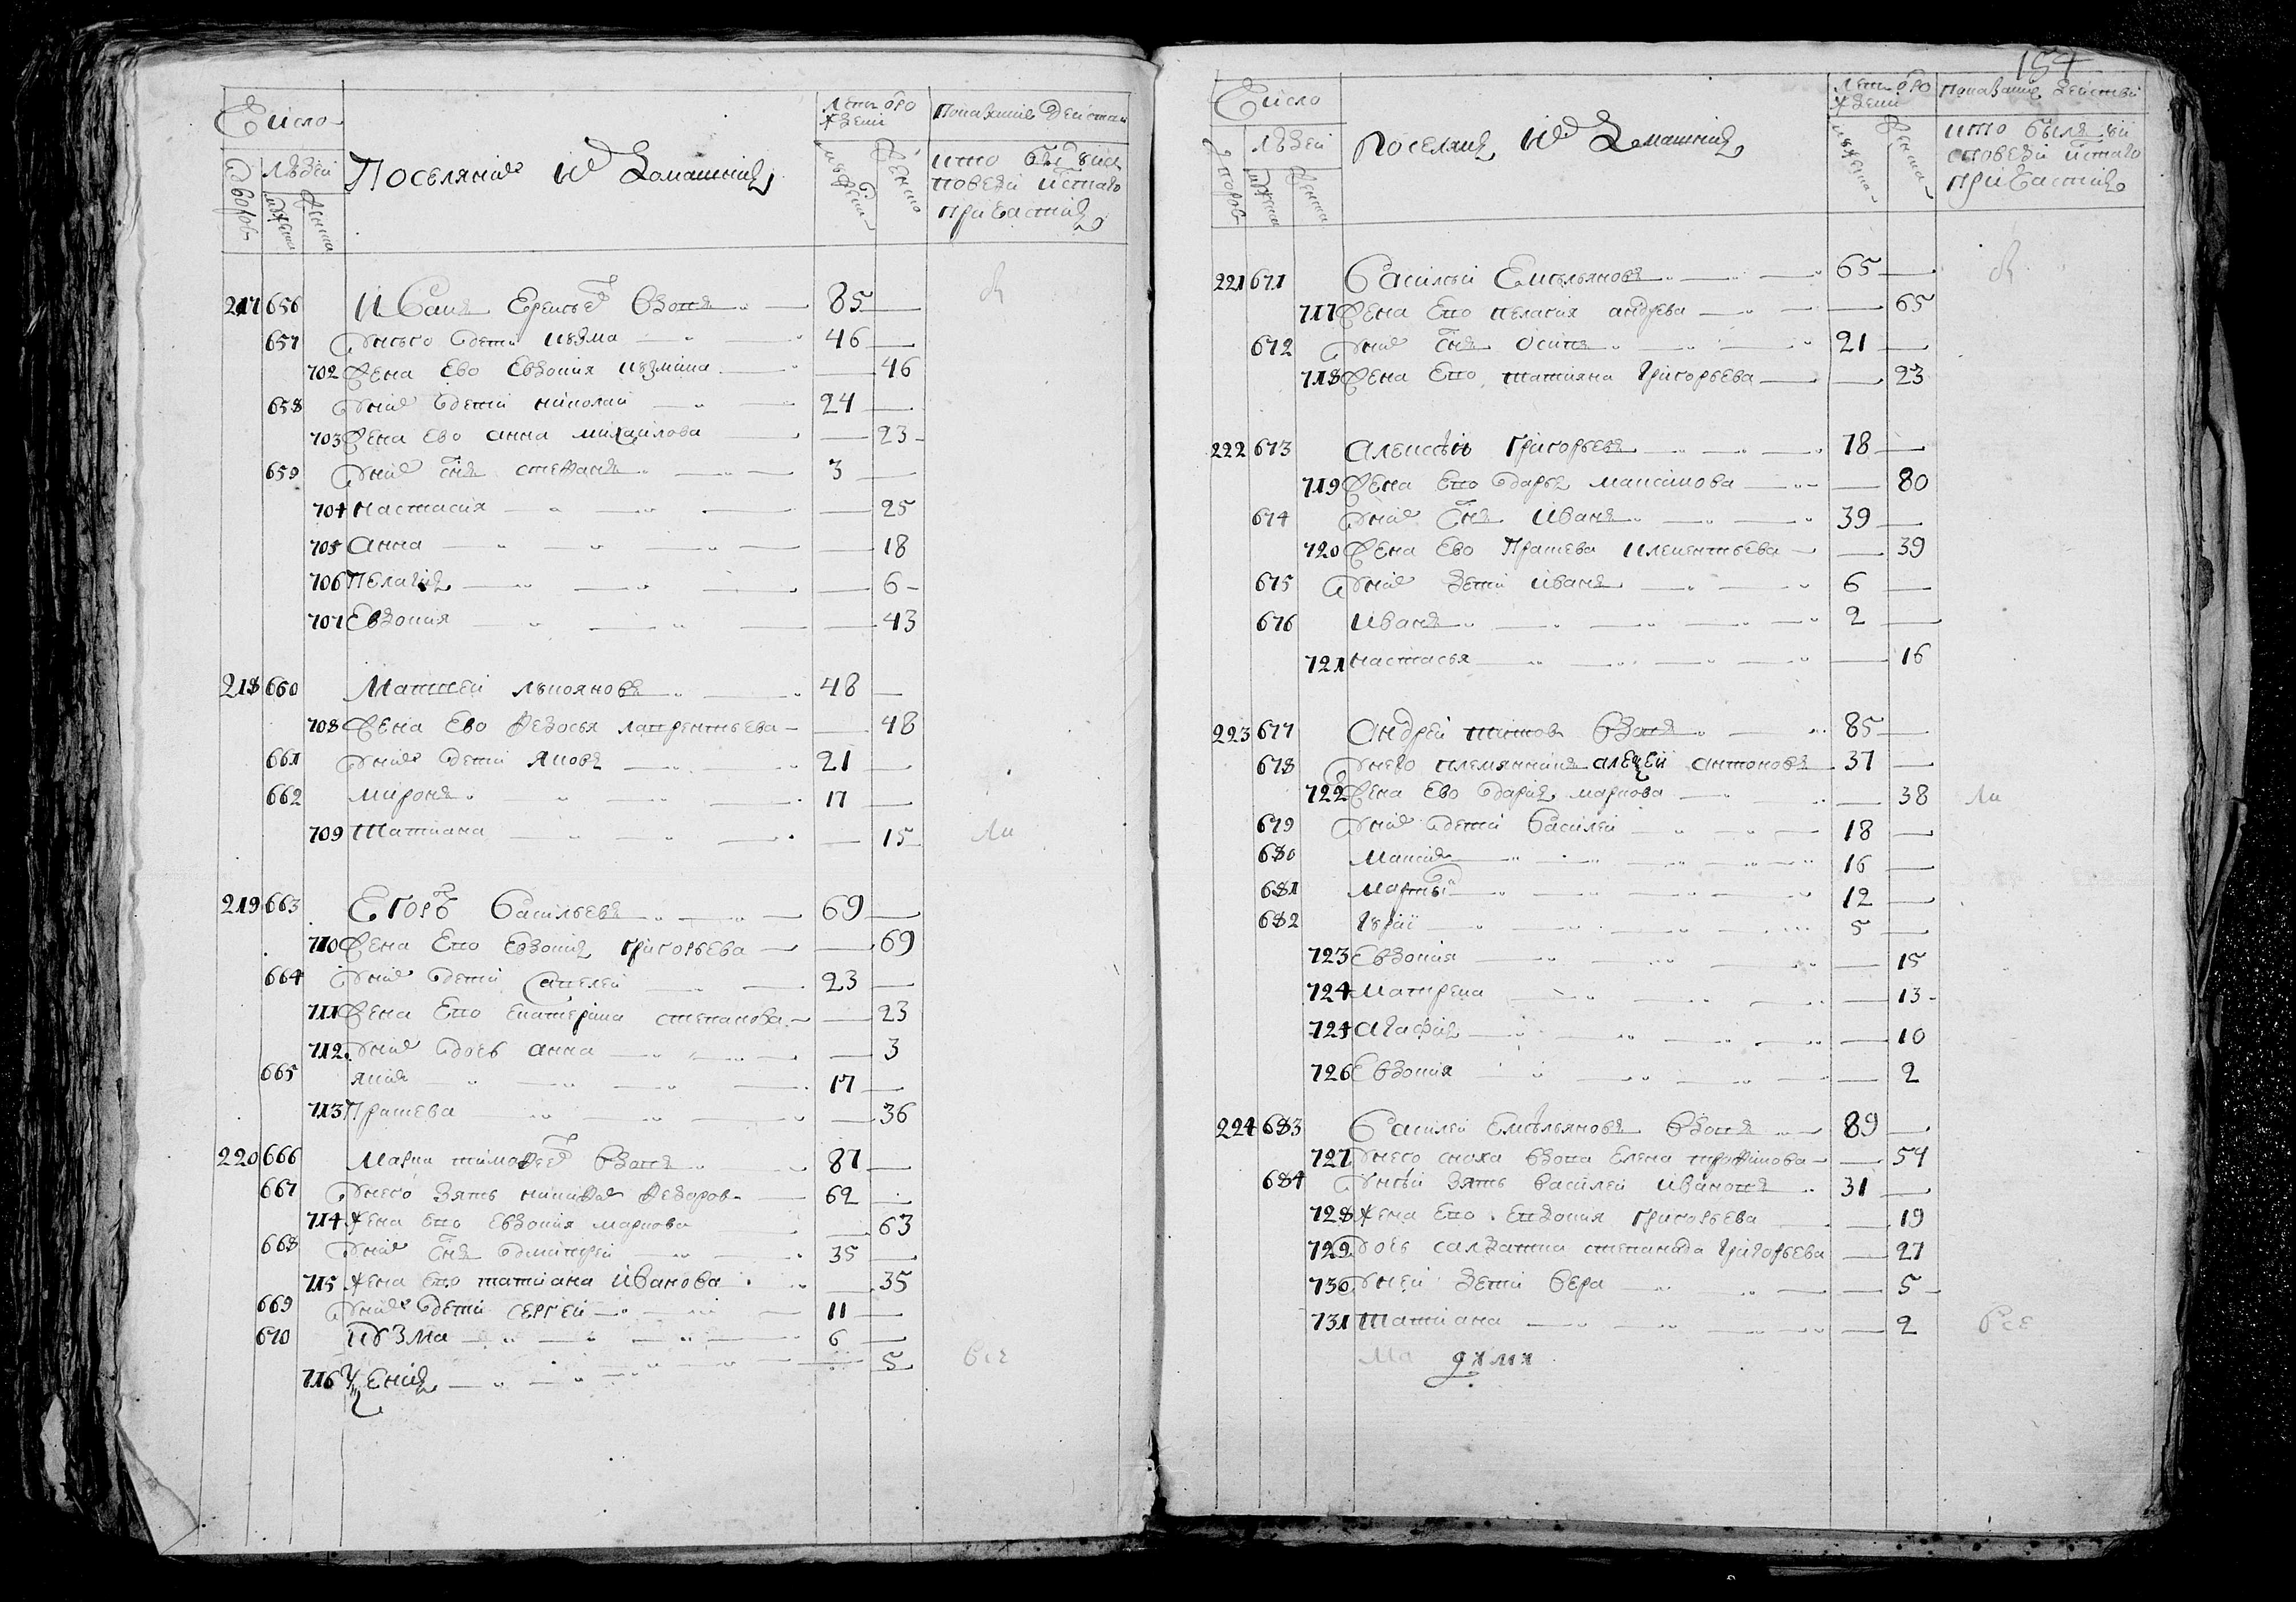 Число
Людей
Дворовъ
Мужеска
Женска
Поселяне и домашнихъ
Лета от рождения
Мужеска
Женска
Показание действа
кто был у исповеди и святаго причастия
217 656 Иванъ Еремеев вдовъ 85
657 У него дети Кузма 46
702 Жена ево Евдокия Кузмина 46
658 У них дети Николай 24
703 Жена ево Анна Михайлова 23
659 У них снъ Стефанъ 3
704 Настасия 25
705 Анна 18
706 Пелагия 6
707 Евдокия 43
218 660 Матвей Лукояновъ 48
708 Жена ево Федосья Лаврентьева 48
661 У них дети Яковъ 21
662 Миронъ 17
709 Татиана 15
219 663 Егоръ Васильевъ 69
710 Жена ево Евдокия Григорьева 69
664 У них дети Савелей 23
711 Жена ево Екатерина Степанова 23
712 У них дочь Анна 3
665 Яким 17
713 Прасева 36
220 666 Марки Тимофеев вдовъ 87
667 У него зять Никифор Федоров 62
714 Жена ево Евдокия Маркова 63
668 У них снъ Дмитрей 35
715 Жена ево Татиана Иванова 35
669 У них дети Сергей 11
670 Кузма 6
716 Ксения 5
все
154
Число
Людей
Дворовъ
Мужеска
Женска
Поселянъ и домашнихъ
Лета от рождения
Мужеска
Женска
Показание действа
кто был у исповеди и святаго причастия
221 671 Василий Емельяновъ 65
717 Жена ево Пелагия Андрева 65
672 У них снъ Осипъ 21
718 Жена ево Татияна Григорьева 23
222 673 Алексей Григорьевъ 78
719 Жена ево Дарья Максимова 80
674 У них снъ Иванъ 39
720 Жена ево Прасева Клементьева 39
675 У них дети Иванъ 6
676 Иванъ 2
721 Настасья 16
223 677 Андрей Титов вдовъ 85
678 У него племянникъ Алексей Антоновъ 37
722 Жена ево Дария Маркова 38
679 У них дети Василей 18
680 Максим 16
681 Мартын 12
682 Юрий 5
723 Евдокия 15
724 Матрена 13
725 Агафия 10
726 Евдокия 2
224 683 Василей Емельяновъ вдовъ 89
727 У него сноха вдова Елена Трофимова 54
684 У ней зять Василей Ивановъ 31
728 Жена ево Евдокия Григорьева 19
729 Дочь салдатка Степанида Григорьева 27
730 У ней дети Вера 5
731 Татиана 2
все